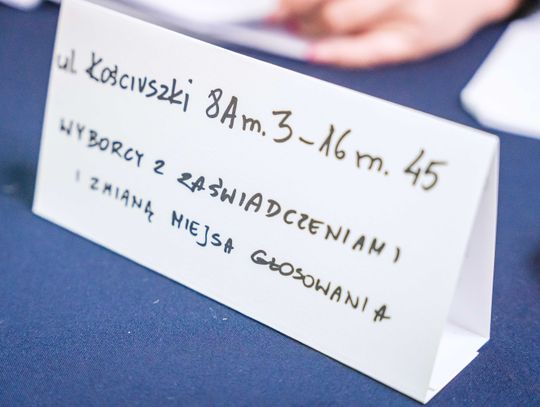 ul Kościuszki 8A m. 3 - 16 m. 45
WYBORCY Z ZAŚWIADCZENIAMI
I ZMIANĄ MIEJSA GŁOSOWANIA